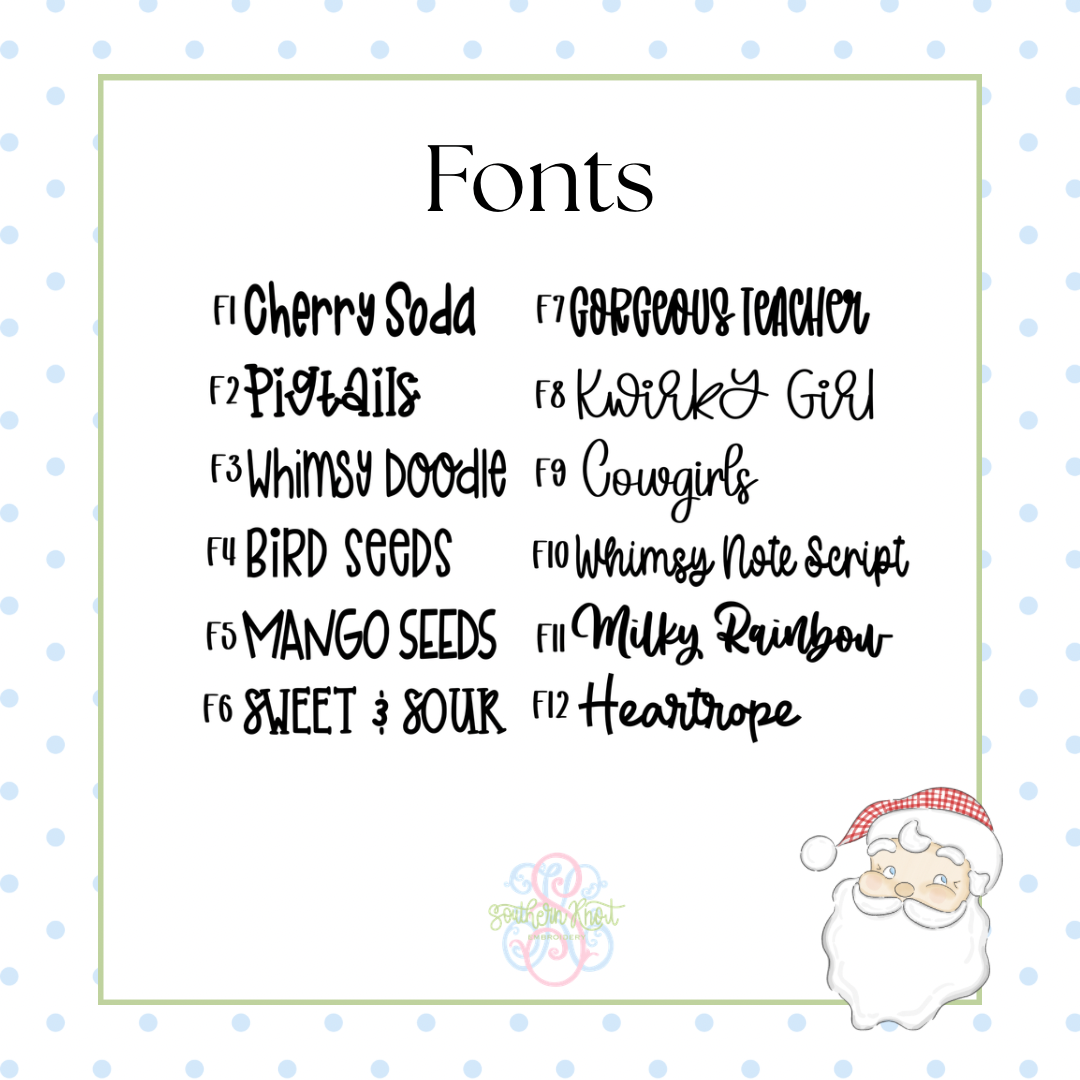 Fonts
F1 Cherry Soda
F2 Pigtails
F3 Whimsy Doodle
F4 BIRD SeeDS
F5 MANGO SEEDS
F6 SWEET & SOUR
F7 GORGeOUS TeACHer
F8 Kwirky Girl
F9 Cowgirls
F10 Whimsy Note Script
F11 Milky Rainbow
F12 Heartrope
Southern Knot
EMBROIDERY